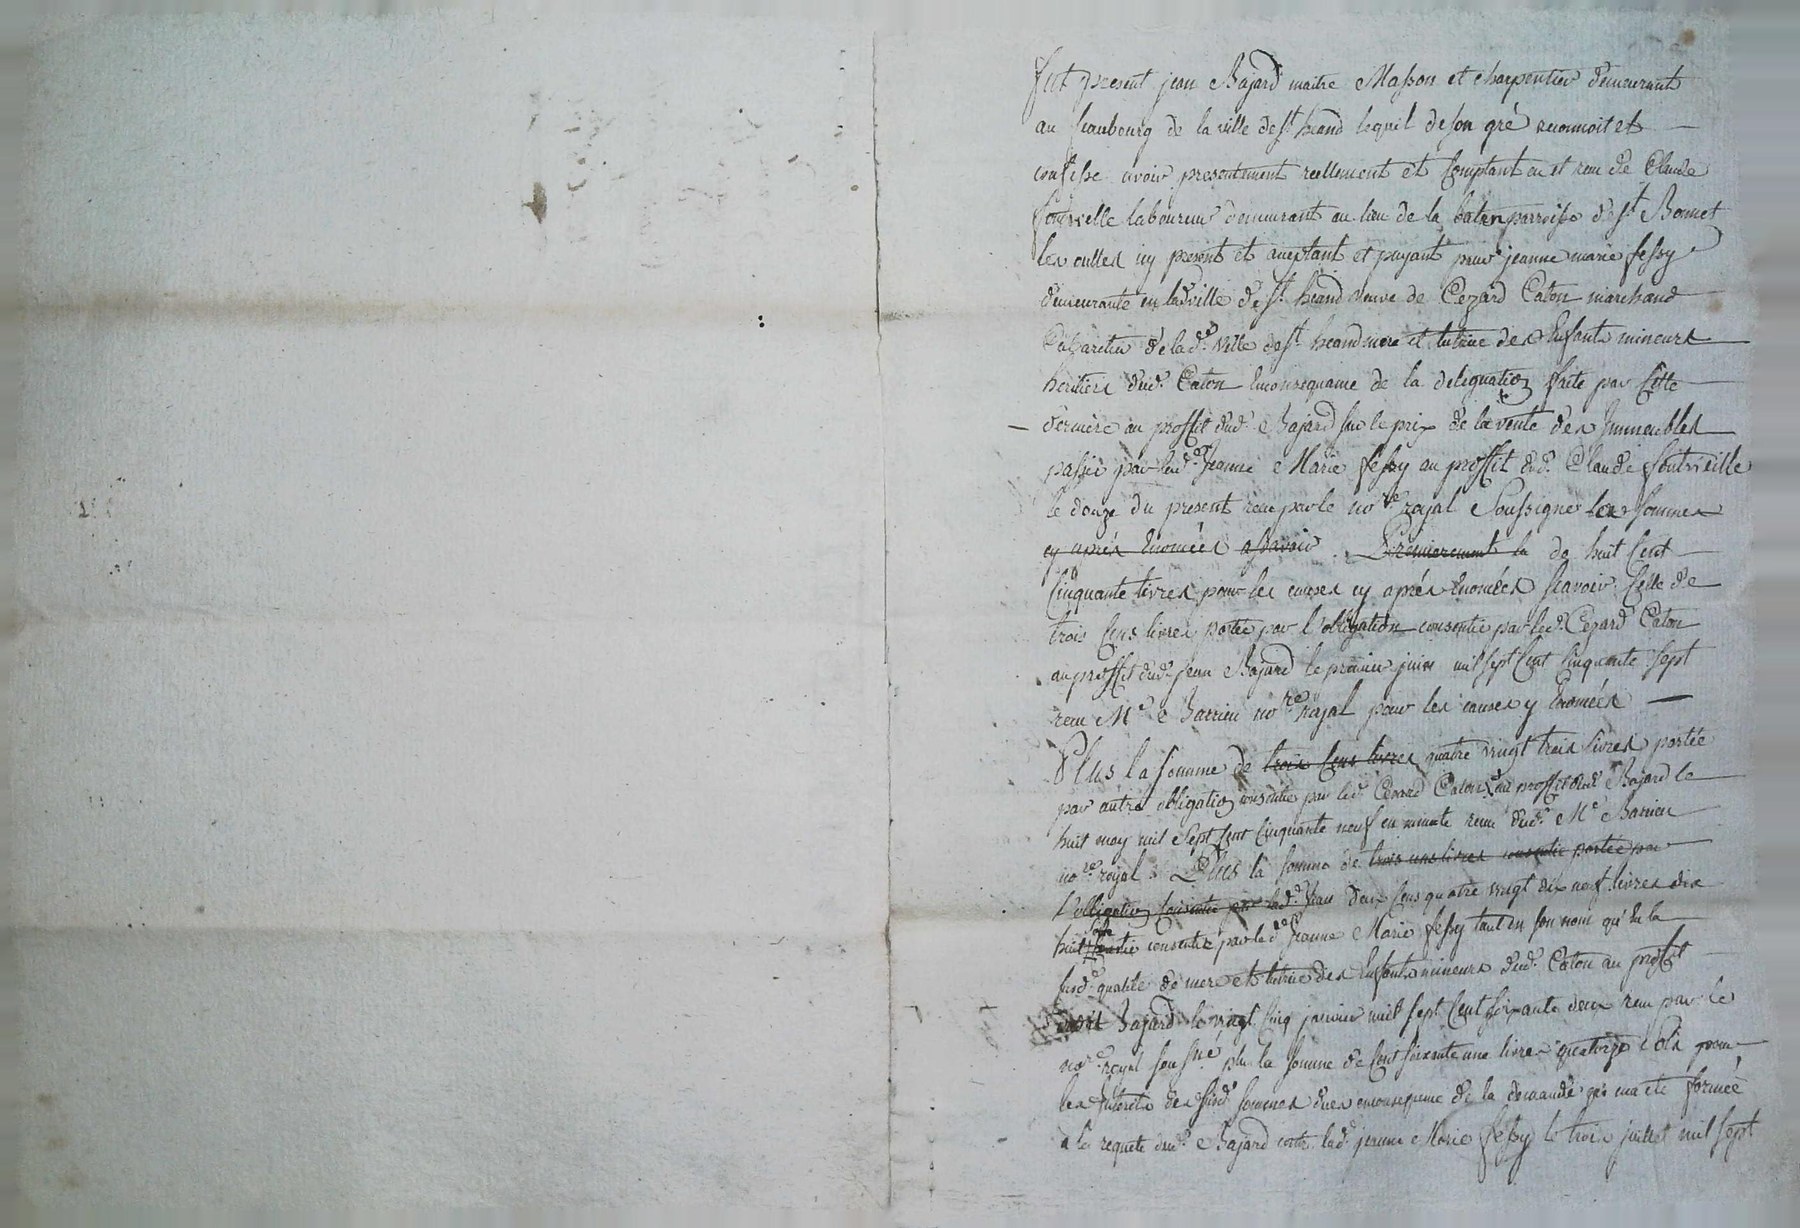 fut present jean Bajard maitre Masson et charpentier demeurant
au fauxbourg de la ville de st heand lequel de son gré reconnoit et
confesse avoir presentement reellement et comptant eu et receu de Claude
fontvielle laboureur demeurant au lieu de la parroisse de st Bonnet
les oulles icy present et acceptant et payant pour jeanne marie fessy
demeurante en lad ville de st heand veuve de Cezard Caton marchand
Cabaretier de lad.e ville de st heand mere et tutrice des Enfants mineurs
heritiers dud. Caton En consequance de la delegation faite par Cette
derniere au proffit dud. Bajard sur le prix de la vente des Immeubles
passée par lad.e Jeanne Marie fessy au proffit dud. Claude fontvieille
le douze du present receu par le no.re royal Soussigné les sommes
cy après Enomées a savoir. Premierement la de huit Cent
Cinquante livres pour les causes cy après Enomées scavoir Celle de
trois Cens livres portée par l'obligation consentie par led. Cezard Caton
au proffit dud. Jean Bajard le premier juin mil sept Cent Cinquante sept
receu M.e Barrieu no.re royal pour les causes y Enomées
Plus la somme de trois Cens livres quatre vingt trois livres portée
par autre obligation consentie par led. Cezard Caton au proffit dud. Bajard le
huit may mil Sept Cent Cinquante neuf en minute receu dud. M.e Barrieu
no.re royal. Plus la somme de trois cens livres consentie portée par
l'obligation Consentie par lad.e Jean deux Cens quatre vingt dix neuf livres dix
huit consentie par lad.e Jeanne Marie fessy tant en son nom qu'En la
susd. qualité de mere et tutrice des Enfants mineurs dud. Caton au proffit
dudit Bajard le vingt Cinq janvier mil sept Cent soixante deux receu par le
no.re royal sous.né plus la somme de Cent soixante une livres quatorze sols pour
les Interets des susd. sommes dues en consequence de la demande qui en a été formée
a la requete dud. Bajard contre lad.e jeanne Marie fessy le trois juillet mil sept